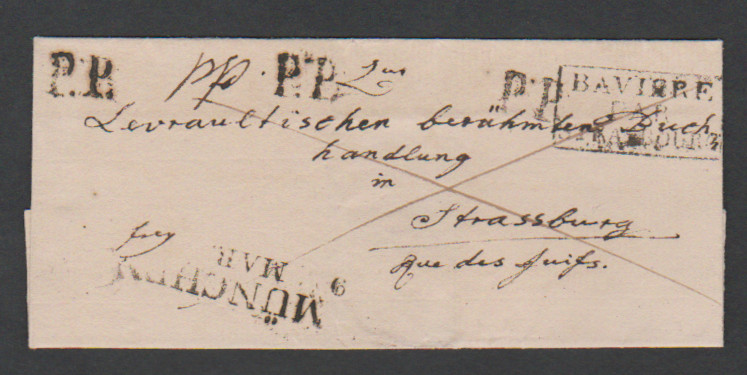 P.P. pp. P.P. Zur P.P.
BAVIERE
PAR
STRASBOURG
Levraultischen berühmten Buch
handlung
in
Strassburg
Rue des Juifs.
frey
MÜNCHEN
9 MAR